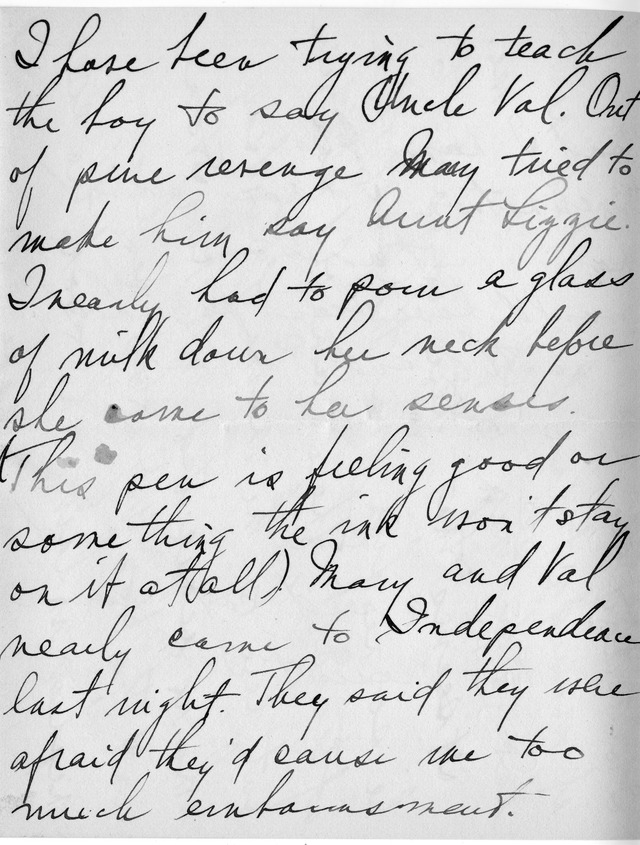 I have been trying to teach
the boy to say Uncle Val. Out
of pure revenge Mary tried to
make him say Aunt Lizzie.
I nearly had to pour a glass
of milk down her neck before
she came to her senses.
(This pen is feeling good or
something the ink won't stay
on it at all) Mary and Val
nearly came to Independence
last night. They said they were
afraid they'd cause me too
much embarrassment.